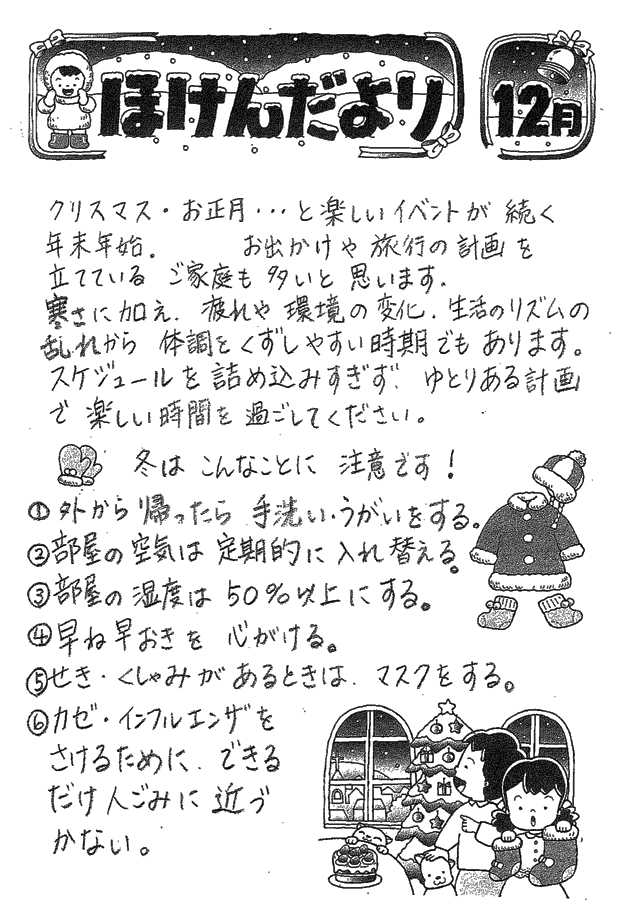 ほけんだより 12月
クリスマス・お正月・・・と楽しいイベントが続く
年末年始. お出かけや旅行の計画を
立てているご家庭も多いと思います.
寒さに加え. 疲れや環境の変化. 生活のリズムの
乱れから体調をくずしやすい時期でもあります。
スケジュールを詰め込みすぎず. ゆとりある計画
で楽しい時間を過ごしてください。
冬はこんなことに注意です!
①外から帰ったら手洗い・うがいをする。
②部屋の空気は定期的に入れ替える。
③部屋の湿度は50%以上にする。
④早ね早おきを心がける。
⑤せき・くしゃみがあるときは. マスクをする。
⑥カゼ・インフルエンザを
さけるために. できる
だけ人ごみに近づ
かない。